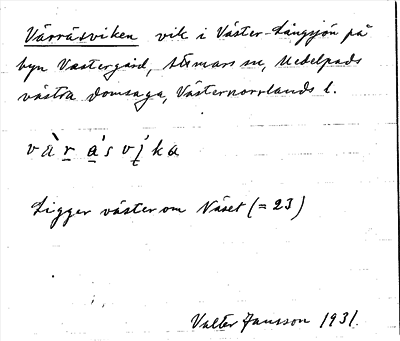 Värråsviken vik i Väster-Långsjön på
byn Västergård, Attmars sn, Medelpads
västra domsaga, Västernorrlands l.
và̀r ás vi̜ka
Ligger väster om Näset (= 23)
Valter Jansson 1931.